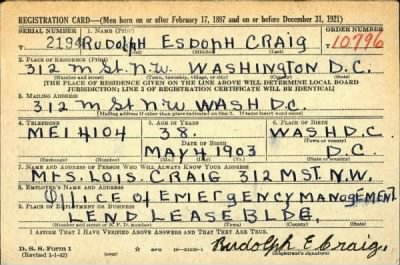 REGISTRATION CARD—(Men born on or after February 17, 1897 and on or before December 31, 1921)
SERIAL NUMBER 1. NAME (Print) ORDER NUMBER
2194 RUDOLPH ESDOPH CRAIG 10796
2. PLACE OF RESIDENCE (Print)
312 M St. N.W. WASHINGTON D.C.
(Number and street) (Town, township, village, or city) (County) (State)
[THE PLACE OF RESIDENCE GIVEN ON THE LINE ABOVE WILL DETERMINE LOCAL BOARD
JURISDICTION; LINE 2 OF REGISTRATION CERTIFICATE WILL BE IDENTICAL]
3. MAILING ADDRESS
312 M St N.W WASH D.C.
[Mailing address if other than place indicated on line 2. If same insert word same]
4. TELEPHONE 5. AGE IN YEARS 6. PLACE OF BIRTH
ME14104 38. WASH D.C.
DATE OF BIRTH
MAY 4 1903 D.C.
7. NAME AND ADDRESS OF PERSON WHO WILL ALWAYS KNOW YOUR ADDRESS
MRS. LOIS. CRAIG 312 M ST. N.W.
8. EMPLOYER'S NAME AND ADDRESS
OFFICE OF EMERGENCY MANAGEMENT
9. PLACE OF EMPLOYMENT OR BUSINESS
LEND LEASE BLDG.
I AFFIRM THAT I HAVE VERIFIED ABOVE ANSWERS AND THAT THEY ARE TRUE.
D. S. S. Form 1
(Revised 1-1-42) Rudolph E Craig